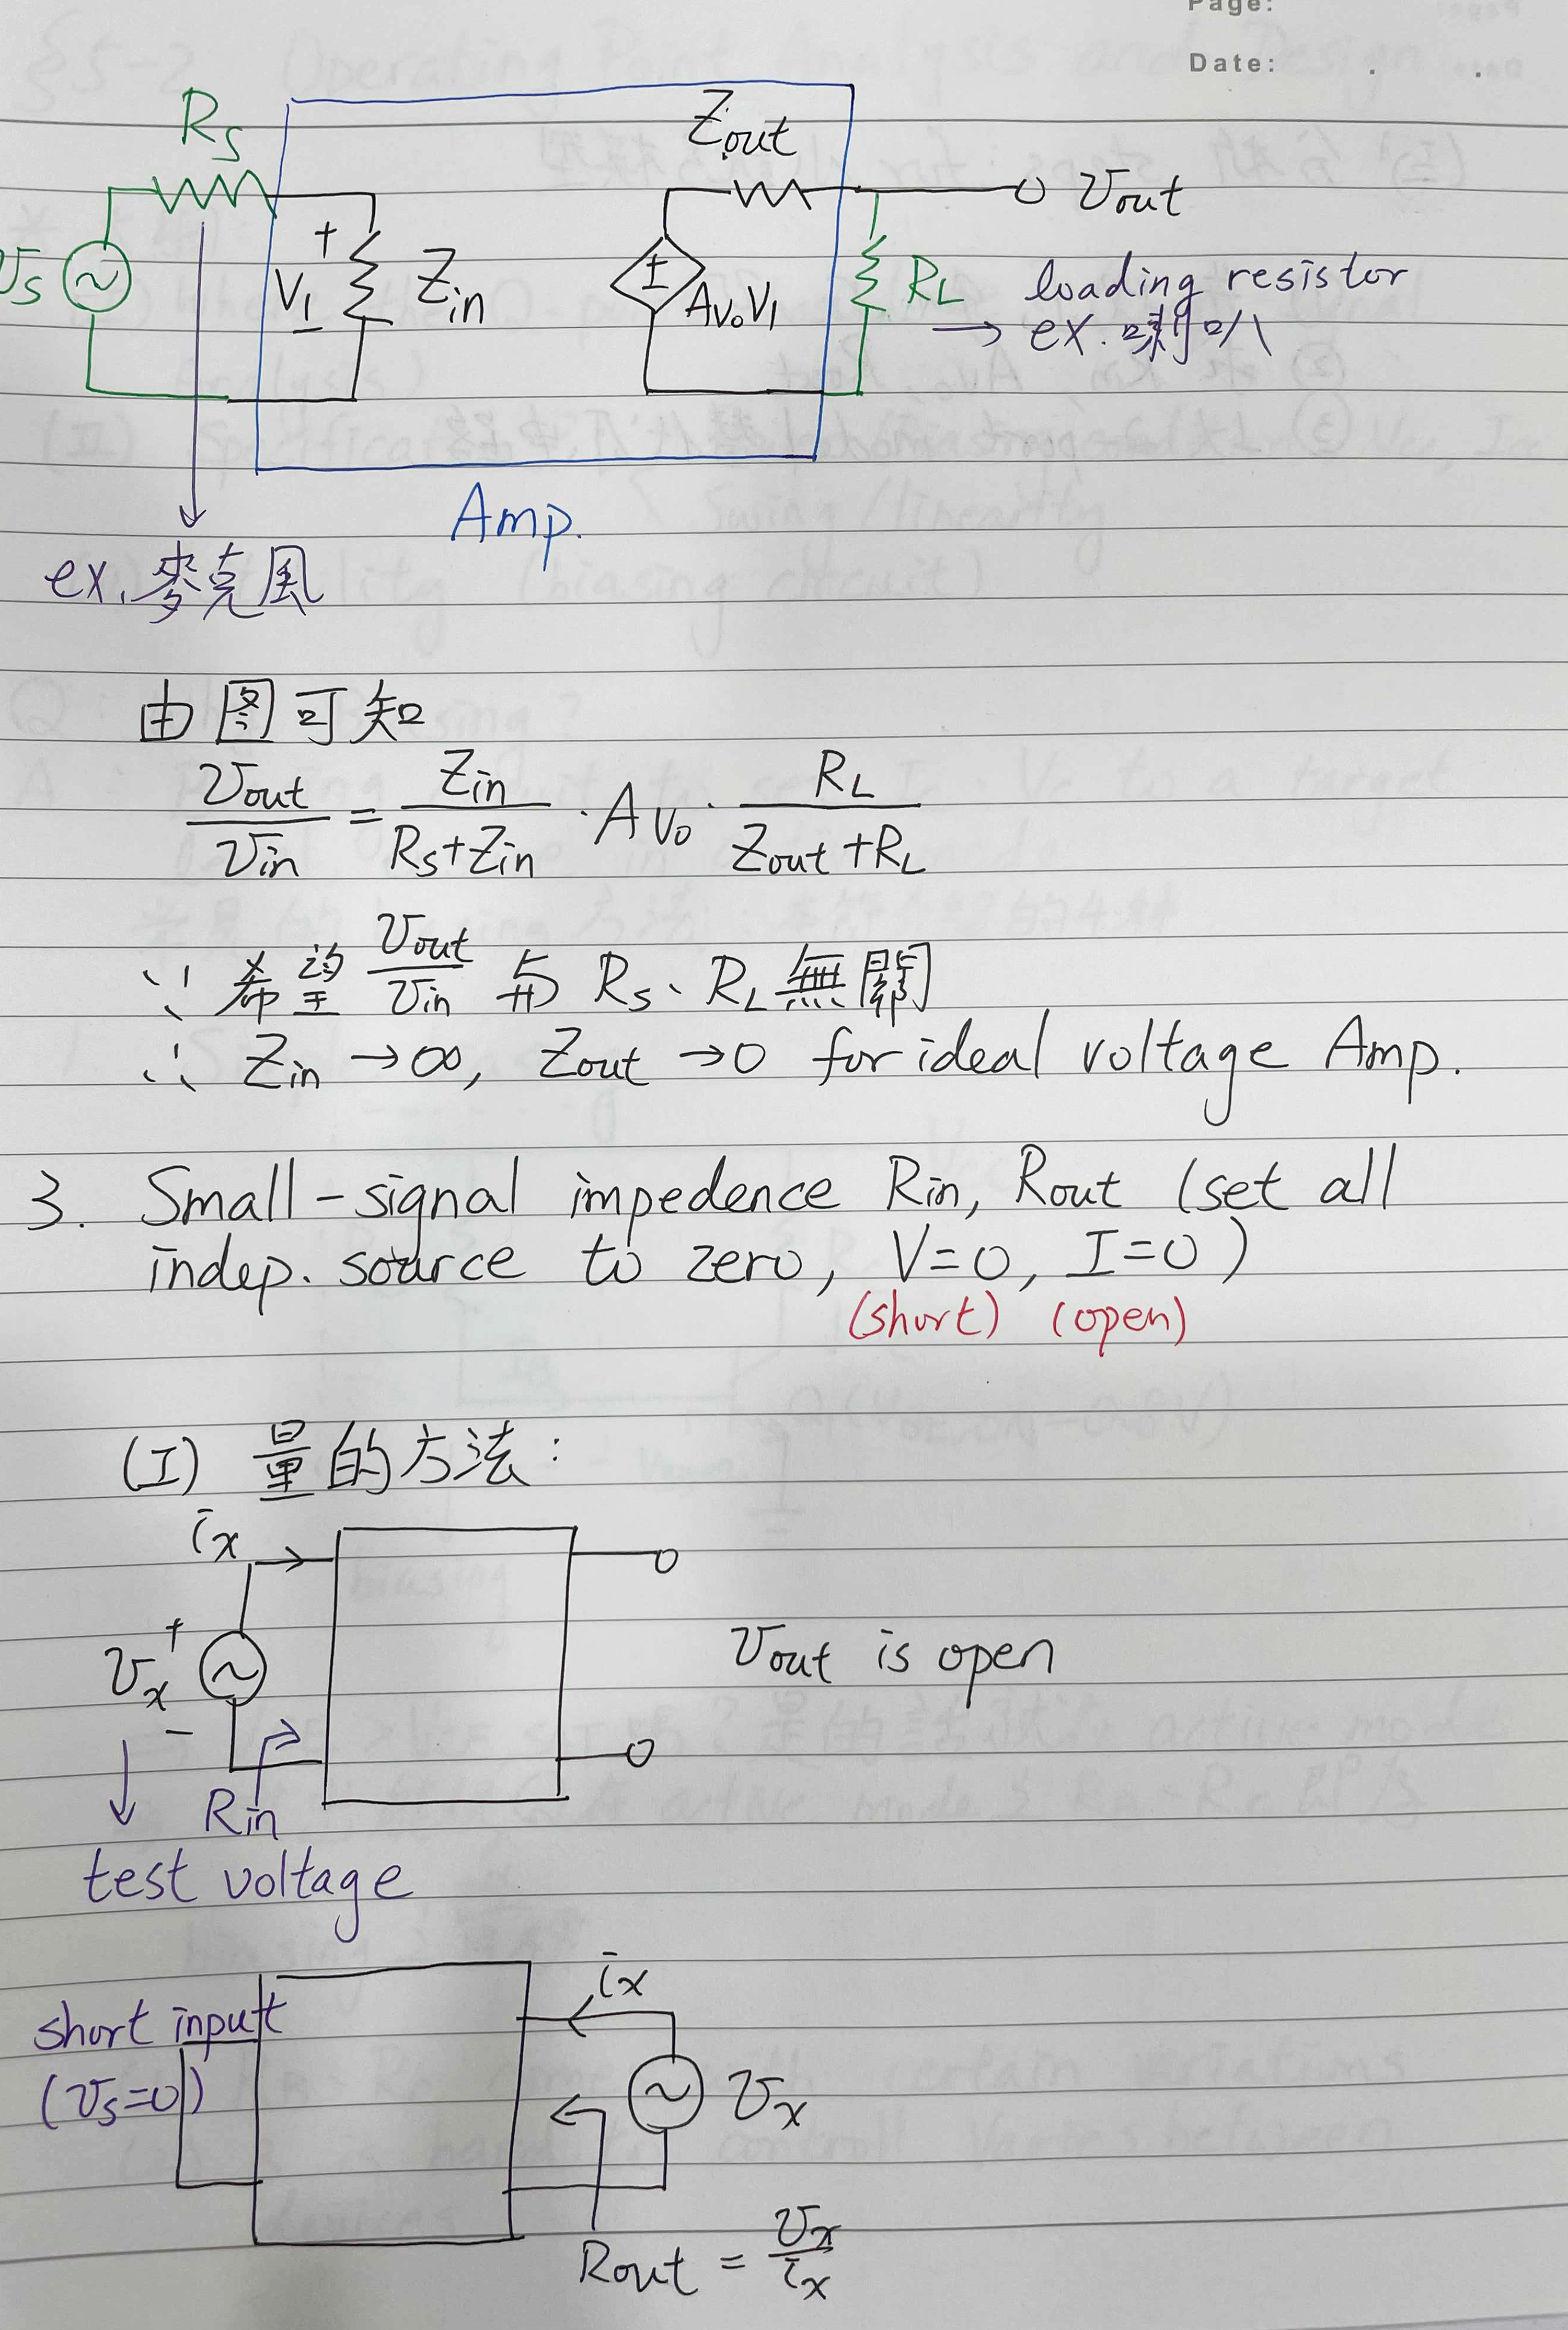 Page:
Date: . .
Rs
Zout
vout
vs
+
V1
-
Zin
±
Av₀V1
RL
loading resistor
→ ex. 喇叭
Amp.
ex. 麥克風
由图可知
vout/vin = Zin/(Rs+Zin) · Av₀ · RL/(Zout+RL)
∵ 希望 vout/vin 与 Rs、RL 無關
∴ Zin → ∞, Zout → 0 for ideal voltage Amp.
3. Small-signal impedence Rin, Rout (set all
indep. source to zero, V=0, I=0)
(short) (open)
(I) 量的方法:
ix
vx
+
-
vout is open
Rin
test voltage
short input
(vs=0)
ix
vx
Rout = vx/ix